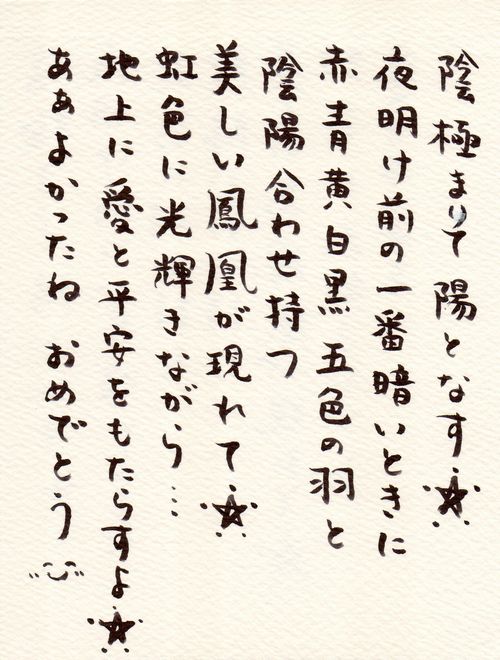 陰極まりて 陽となす☆
夜明け前の一番暗いときに
赤青黄白黒 五色の羽と
陰陽 合わせ持つ
美しい鳳凰が現れて☆
虹色に光輝きながら…
地上に愛と平安をもたらすよ☆
あぁよかったね おめでとう